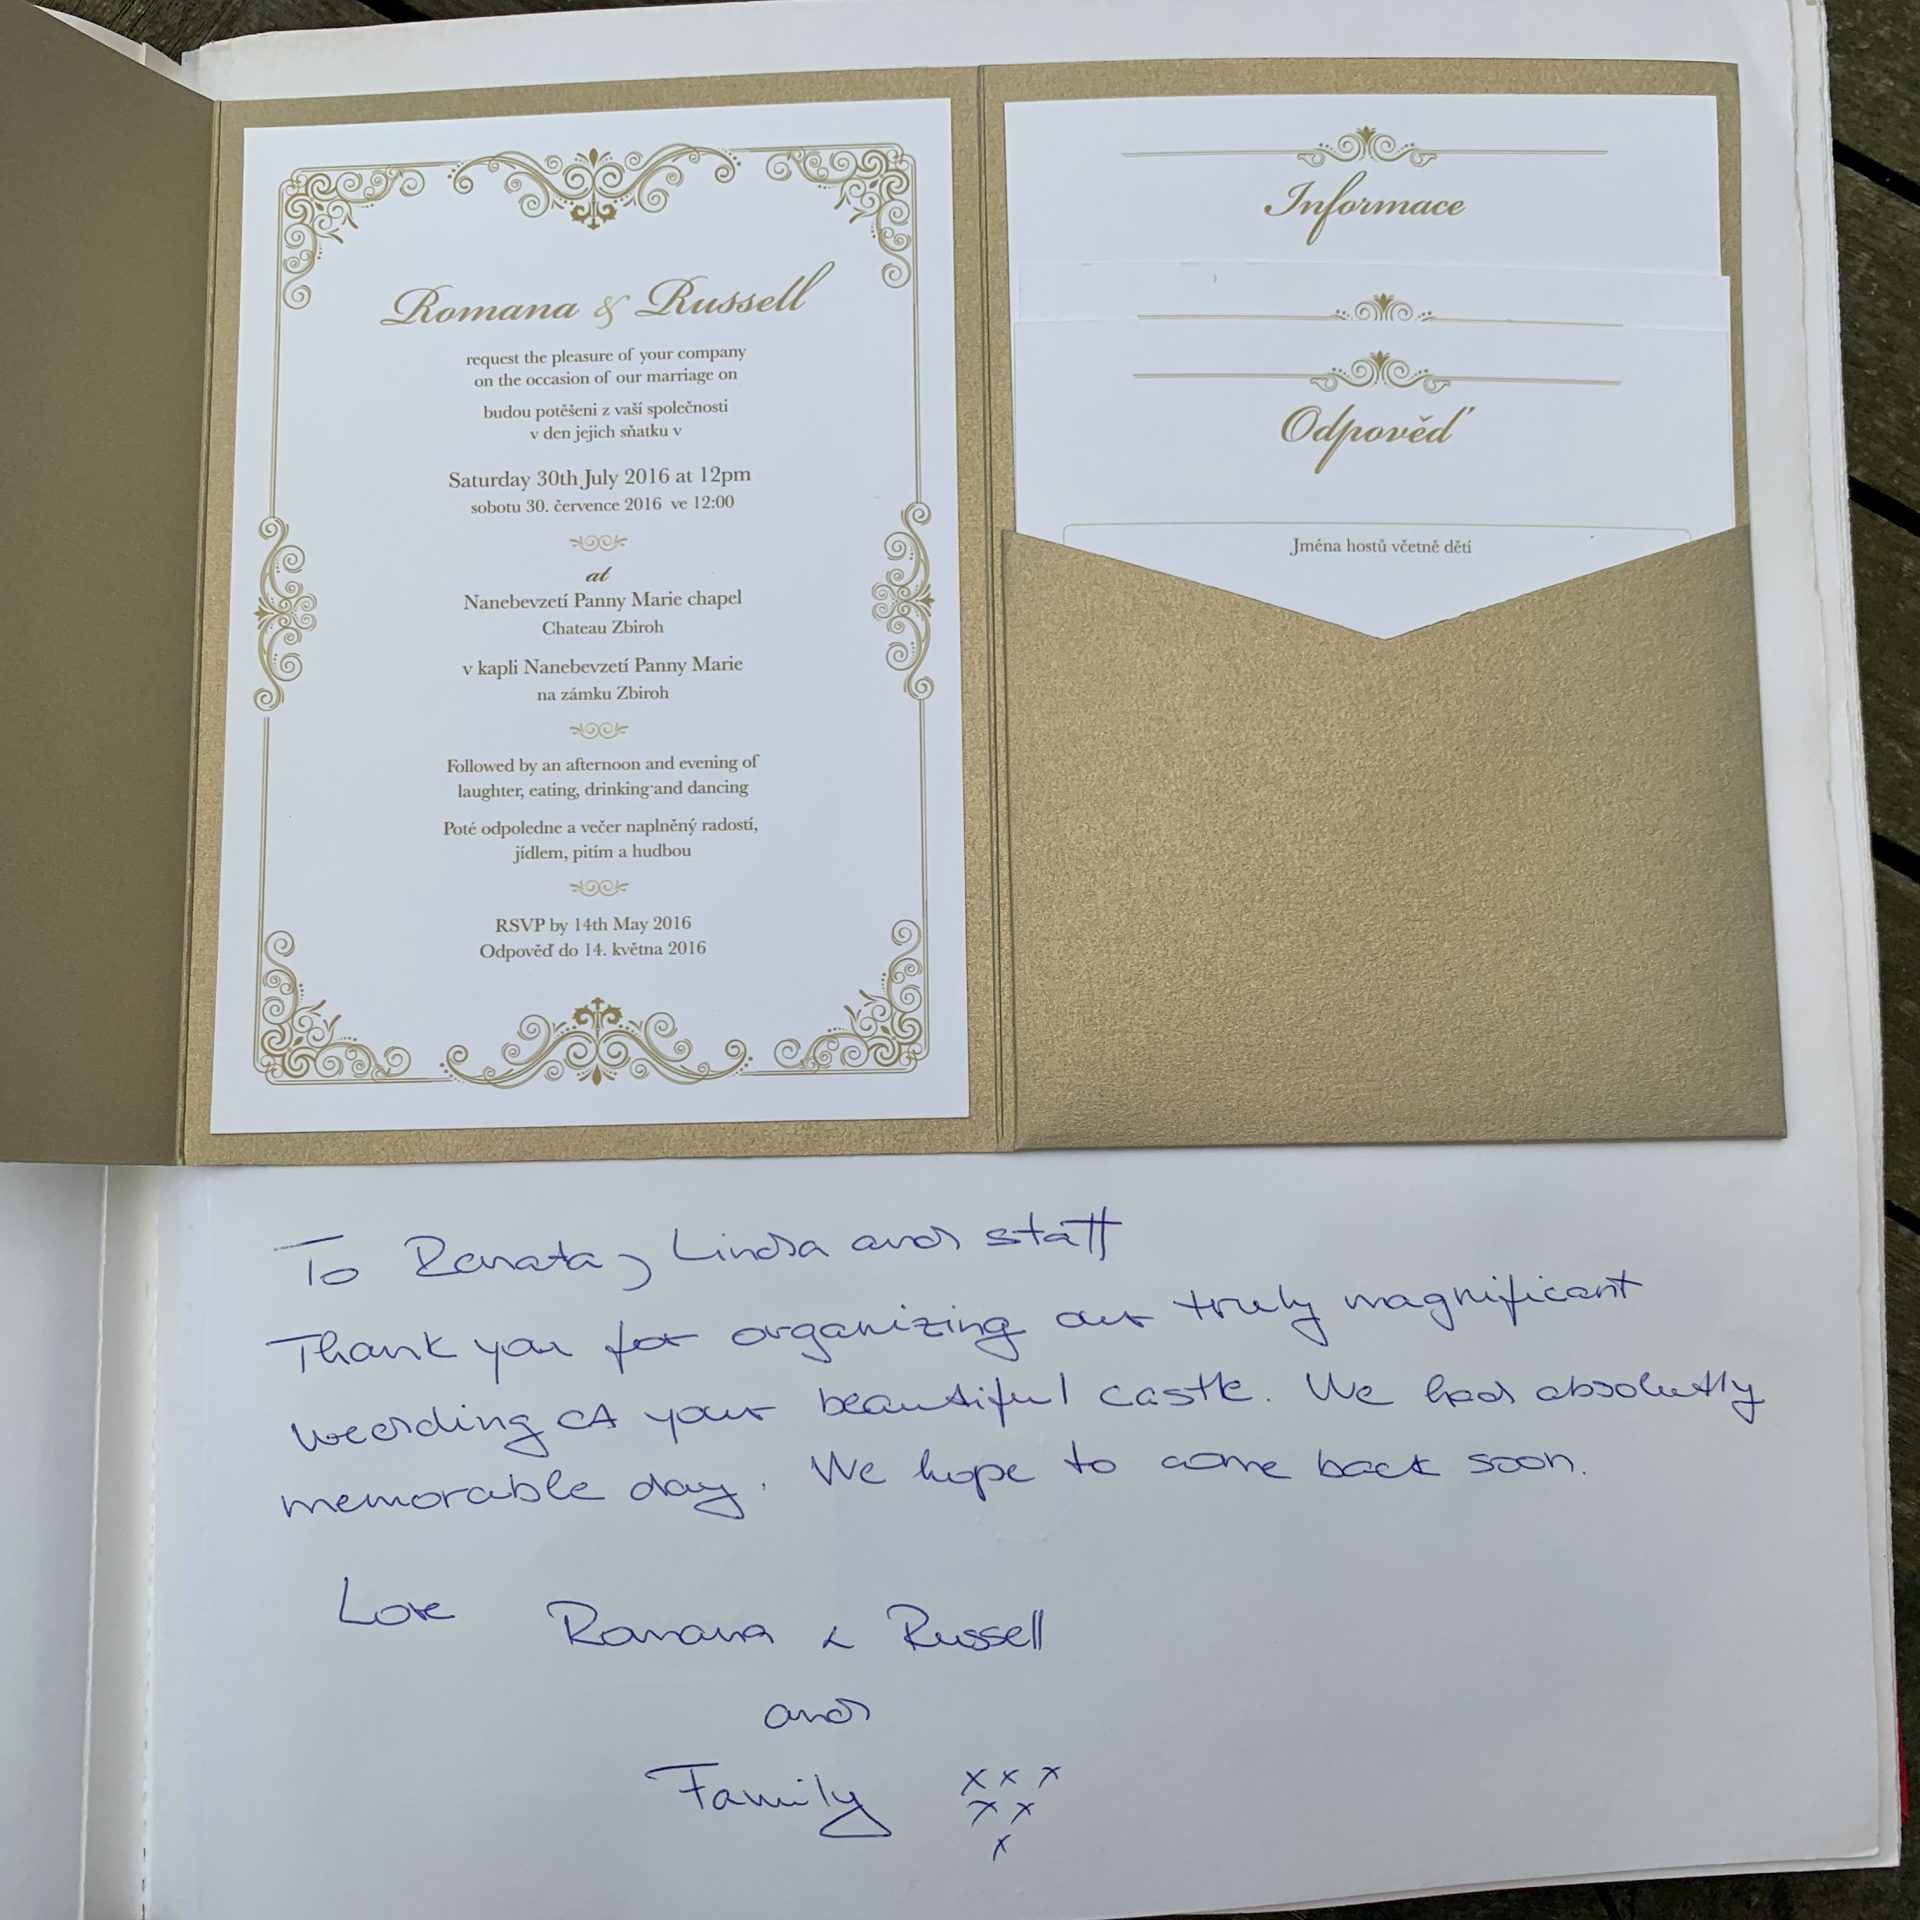 Romana & Russell
request the pleasure of your company
on the occasion of our marriage on
budou potěšeni z vaší společnosti
v den jejich sňatku v
Saturday 30th July 2016 at 12pm
sobotu 30. července 2016 ve 12:00
at
Nanebevzetí Panny Marie chapel
Chateau Zbiroh
v kapli Nanebevzetí Panny Marie
na zámku Zbiroh
Followed by an afternoon and evening of
laughter, eating, drinking and dancing
Poté odpoledne a večer naplněný radostí,
jídlem, pitím a hudbou
RSVP by 14th May 2016
Odpověď do 14. května 2016
Informace
Odpověď
Jména hostů včetně dětí
To Renata, Linda and staff
Thank you for organizing our truly magnificant
wedding at your beautiful castle. We had absolutly
memorable day. We hope to come back soon.
Love Romana & Russell
and
Family x x x
x x
x